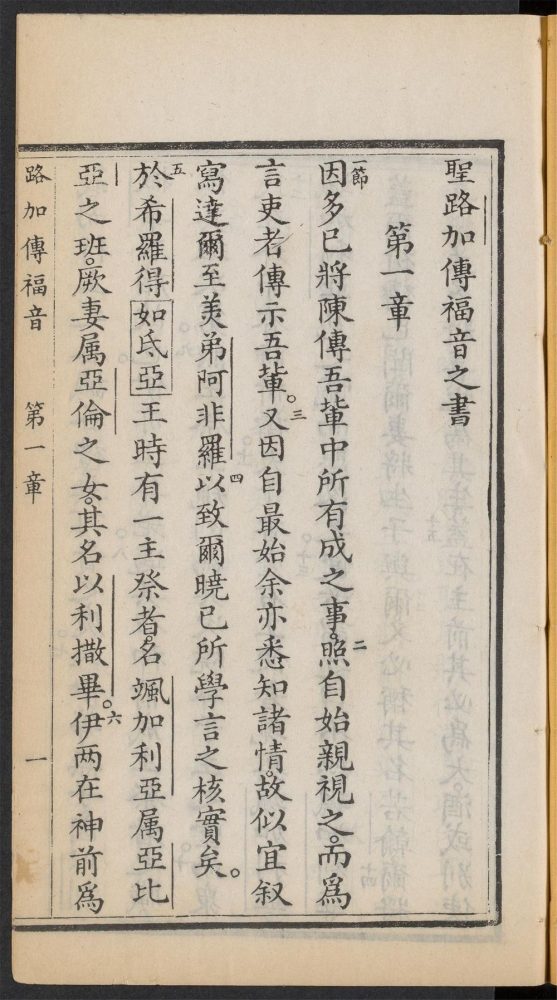 聖路加傳福音之書
第一章
一節因多已將陳傳吾軰中所有成之事。二照自始親視之。而爲
言吏者傳示吾軰。三又因自最始余亦悉知諸情。故似宜叙
寫達爾至羙弟阿非羅。四以致爾曉已所學言之核實矣。
五於希羅得如氐亞王時有一主祭者。名颯加利亞属亞比
亞之班。厥妻属亞倫之女。其名以利撒畢。六伊两在神前爲
路加傳福音 第一章 一